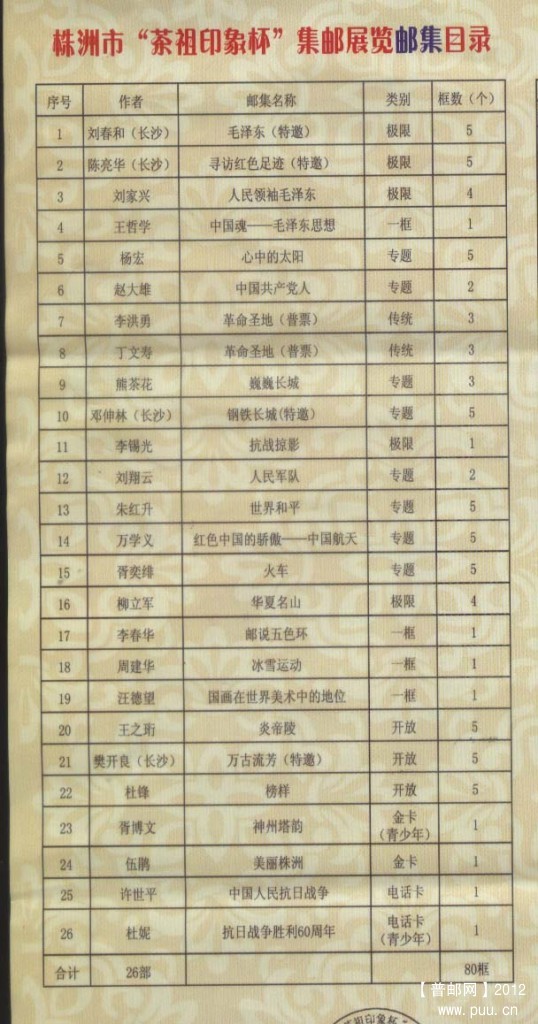 株洲市“茶祖印象杯”集邮展览邮集目录
序号 作者 邮集名称 类别 框数（个）
1 刘春和（长沙） 毛泽东（特邀） 极限 5
2 陈亮华（长沙） 寻访红色足迹（特邀） 极限 5
3 刘家兴 人民领袖毛泽东 极限 4
4 王哲学 中国魂——毛泽东思想 一框 1
5 杨宏 心中的太阳 专题 5
6 赵大雄 中国共产党人 专题 2
7 李洪勇 革命圣地（普票） 传统 3
8 丁文寿 革命圣地（普票） 传统 3
9 熊茶花 巍巍长城 专题 3
10 邓伸林（长沙） 钢铁长城(特邀） 专题 5
11 李锡光 抗战掠影 极限 1
12 刘翔云 人民军队 专题 2
13 朱红升 世界和平 专题 5
14 万学义 红色中国的骄傲——中国航天 专题 5
15 胥奕绯 火车 专题 5
16 柳立军 华夏名山 极限 4
17 李春华 邮说五色环 一框 1
18 周建华 冰雪运动 一框 1
19 汪德望 国画在世界美术中的地位 一框 1
20 王之珩 炎帝陵 开放 5
21 樊开良（长沙） 万古流芳（特邀） 开放 5
22 杜锋 榜样 开放 5
23 胥博文 神州塔韵 金卡（青少年） 1
24 伍鹃 美丽株洲 金卡 1
25 许世平 中国人民抗日战争 电话卡 1
26 杜妮 抗日战争胜利60周年 电话卡（青少年） 1
合计 26部 80框
茶祖印象杯
【普邮网】2012
www.puu.cn